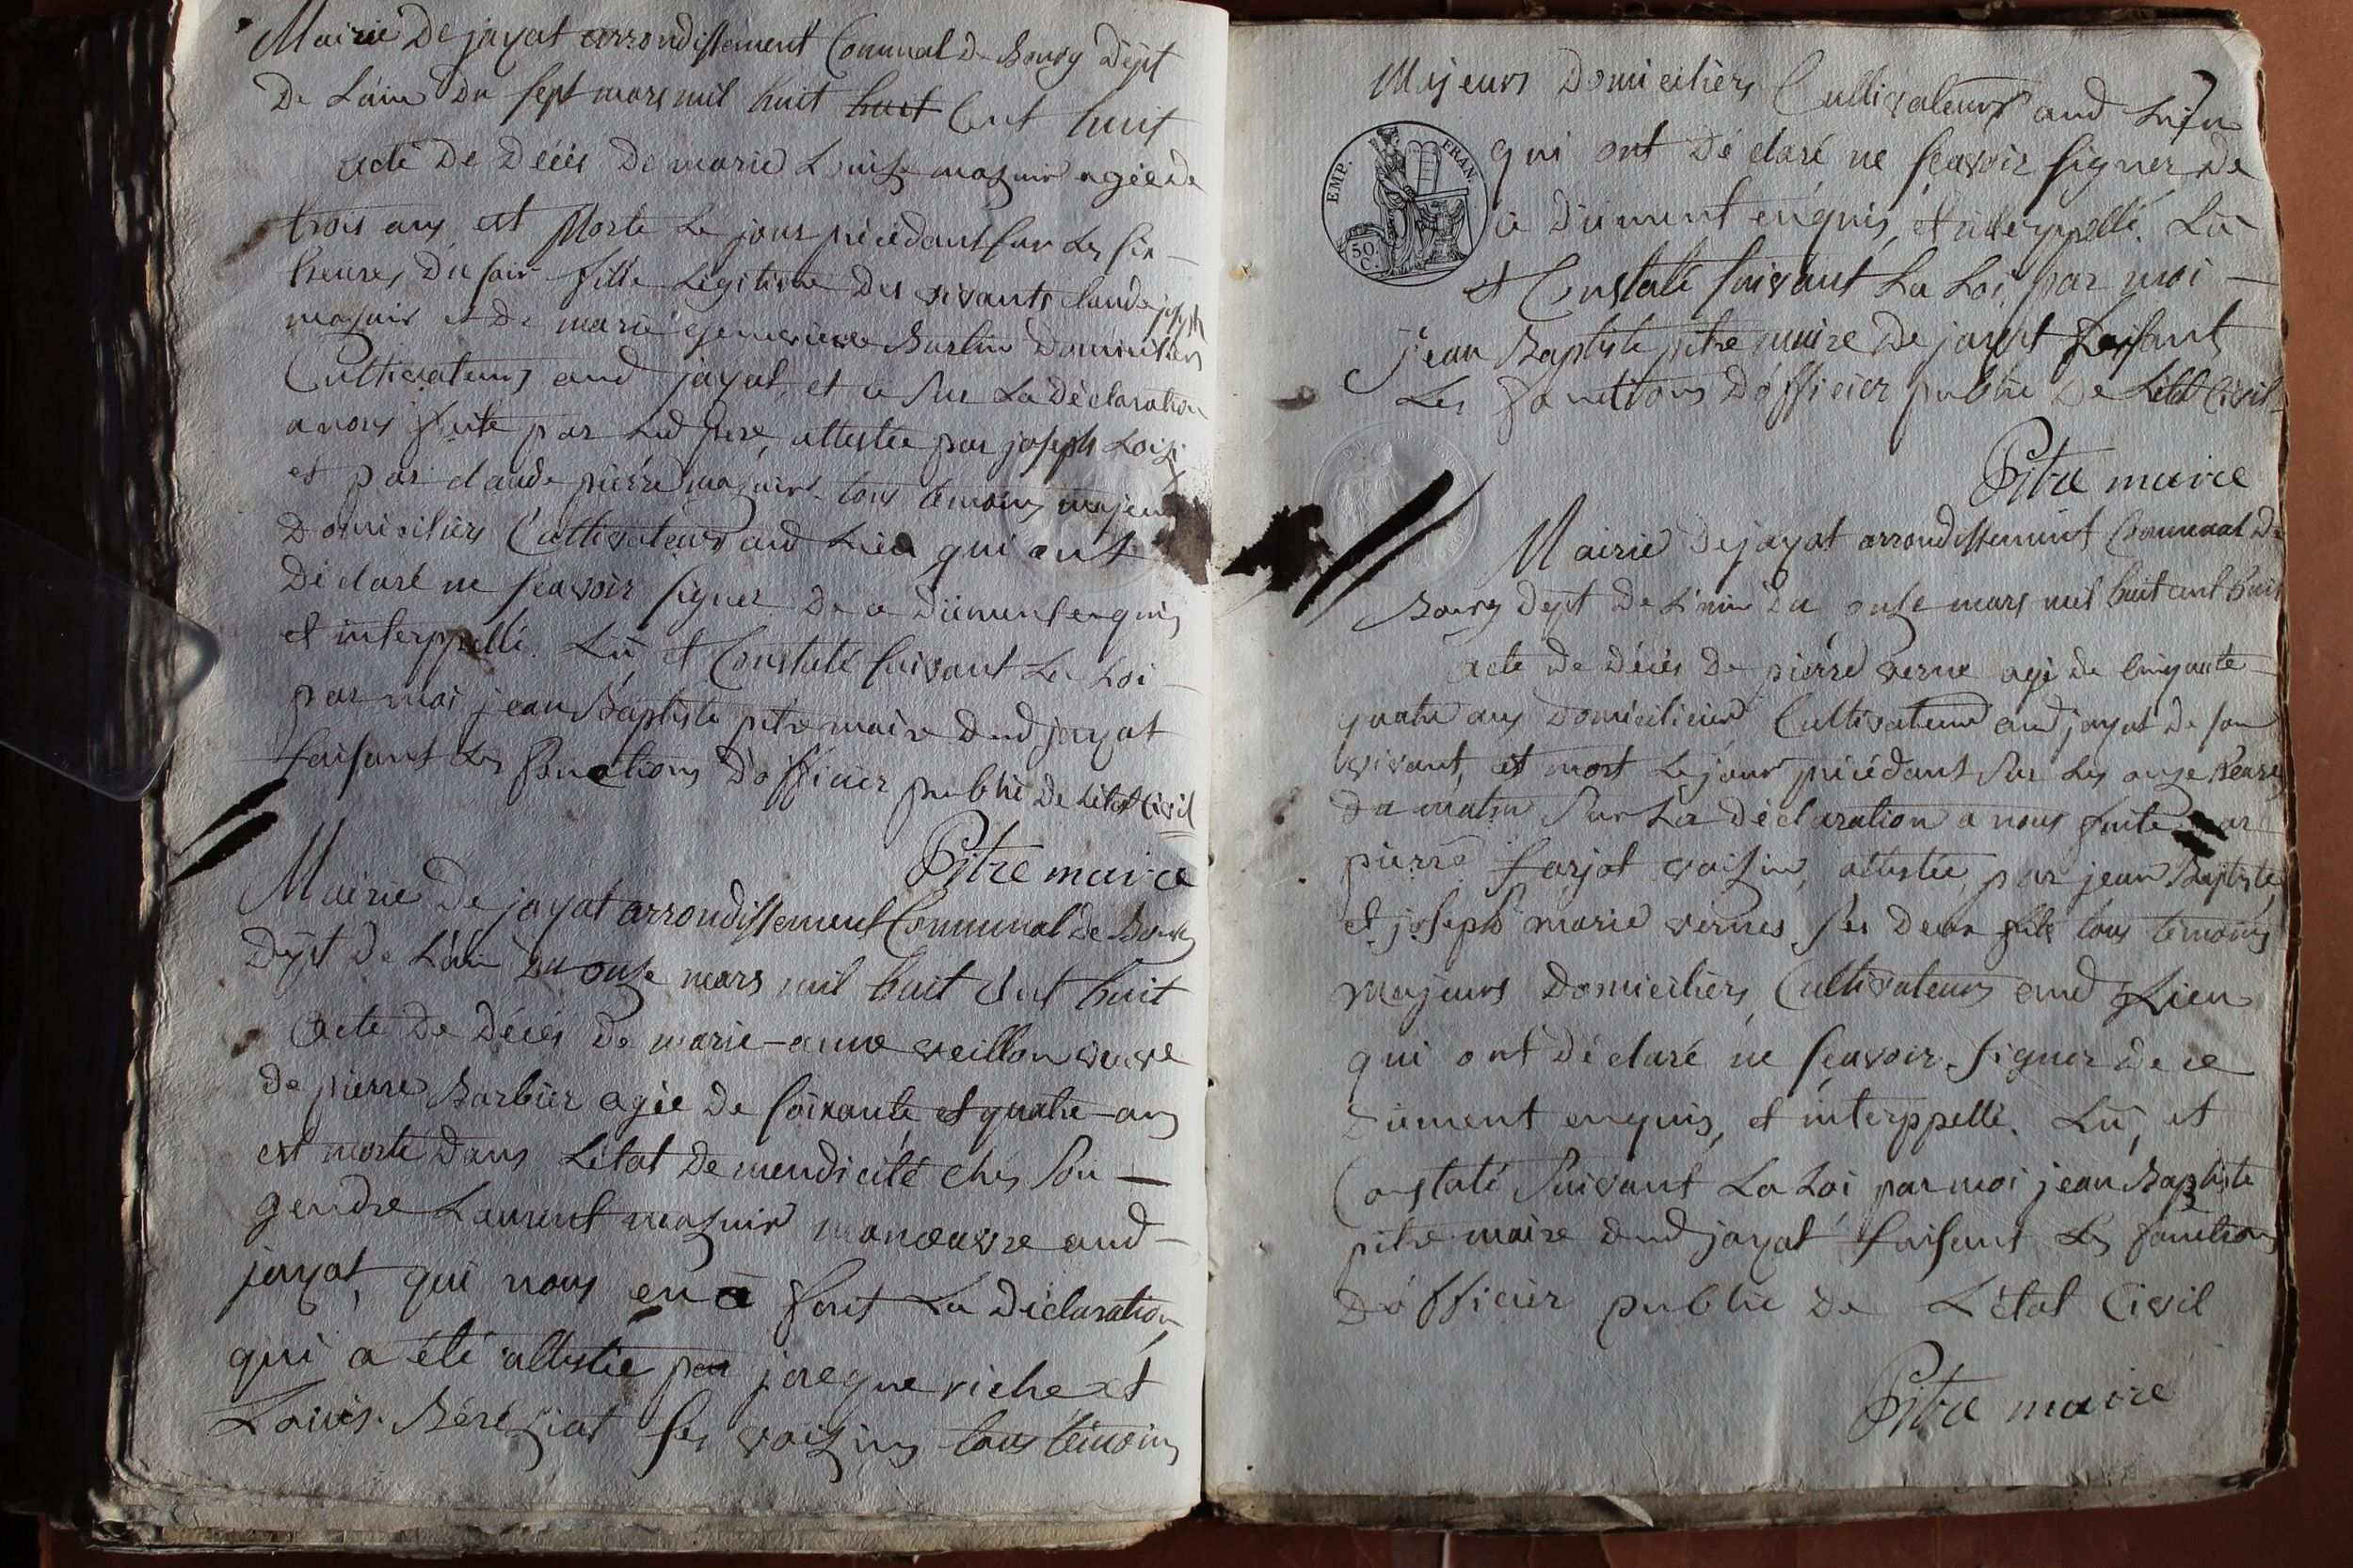 Mairie De jayat arrondissement Communal De Bourg Dép't
De L'ain Du sept mars mil huit huit Cent huit
acte De Décés De marie Louise mazuir agée De
trois ans est Morte Le jour précédant sur Les six
heures Du soir fille Légitime Des vivants claude joseph
mazuir et De marie genevieve Burtin Domiciliés
Cultivateurs aud jayat, et ce sur La Déclaration
a nous faite par Led pere, attestée par joseph Loisy
et par claude pierre mazuir tous témoins majeurs
Domiciliés Cultivateurs aud Lieu qui ont
Déclaré ne sçavoir signer De ce Düment enquis
et interppellé. Lü et Constaté suivant La Loi
par moi jean Baptiste pitre maire Dud jayat
faisant Les fonctions D'officier public De L'état Civil
Pitre maire
Mairie De jayat arrondissement Communal de Bourg
Dép't De L'ain Du onze mars mil huit Cent huit
acte De Décés De marie-anne veillon veuve
De pierre Barbier agée De soixante et quatre ans
est morte Dans L'état De mendicité chés son
gendre Laurent mazuir manoeuvre aud
jayat, qui nous en a fait La Déclaration,
qui a été attestée par jacque riche et
Louis Béréziat ses voisins tous témoins
Majeurs Domiciliés Cultivateurs aud Lieu
EMP. FRAN.
50 C.
qui ont Déclaré ne sçavoir signer De
ce Düment enquis, et interppellé. Lü
et Constaté suivant La Loi par moi
jean Baptiste pitre maire De jayat faisant
Les fonctions D'officier public De L'état Civil
Pitre maire
Mairie De jayat arrondissement Communal De
Bourg Dép't De L'ain Du onze mars mil huit cent huit
acte De Décés De pierre verne agé de cinquante
quatre ans Domicilié Cultivateur aud jayat De son
vivant, est mort Le jour précédant sur Les onze heures
Du matin sur La Déclaration a nous faite par
pierre farjot voisin, attestée par jean Baptiste,
et joseph marie vernes ses Deux fils tous témoins
majeurs Domiciliés, Cultivateurs aud Lieu
qui ont Déclaré ne sçavoir signer De ce
Düment enquis, et interppellé. Lü, et
Constaté suivant La Loi par moi jean Baptiste
pitre maire Dud jayat faisant Les fonctions
D'officier public De L'état Civil
Pitre maire